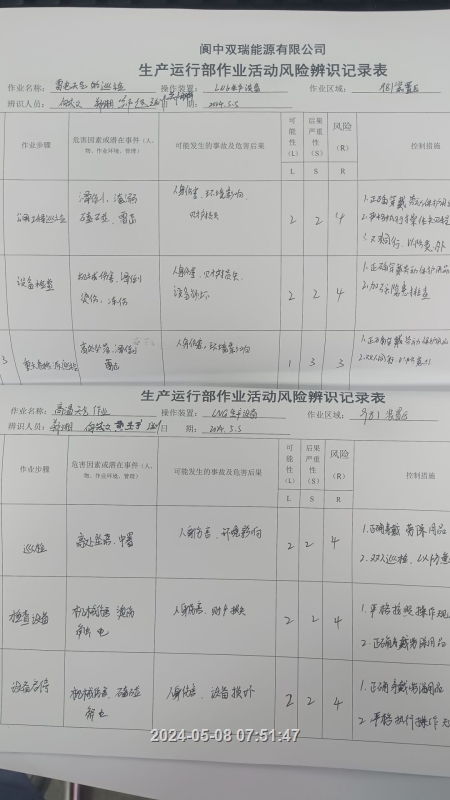 阆中双瑞能源有限公司
生产运行部作业活动风险辨识记录表
作业名称：雷电天气的巡检 操作装置：LNG生产设备 作业区域：
辨识人员： 期：2024.5.5
作业步骤 危害因素或潜在事件（人、物、作业环境、管理） 可能发生的事故及危害后果 可能性（L） 后果严重性（S） 风险（R） 控制措施
L S R
滑倒、
磕碰、雷击
人身伤害、环境影响
财产损失
2 2 4
1.正确穿戴劳动保护用品
设备检查
机械伤害、滑倒
烫伤、冻伤
人身伤害、财产损失、
设备损坏
2 2 4
1.正确穿戴劳动保护用品
2.加强隐患排查
3
高处坠落、滑倒
雷击
人身伤害、环境影响
1 3 3
1.正确穿戴劳动保护用品
生产运行部作业活动风险辨识记录表
作业名称：高温天气作业 操作装置：LNG生产设备 作业区域：
辨识人员： 期：2024.5.5
作业步骤 危害因素或潜在事件（人、物、作业环境、管理） 可能发生的事故及危害后果 可能性（L） 后果严重性（S） 风险（R） 控制措施
L S R
巡检
高处坠落、中暑
人身伤害、环境影响
2 2 4
1.正确穿戴劳保用品
2.双人巡检，以防意
检查设备
机械伤害、烫伤
触电
人身伤害、财产损失
2 2 4
1.严格按照操作规
2.正确穿戴劳保用品
设备启停
机械伤害、磕碰
触电
人身伤害、设备损坏
2 2 4
1.正确穿戴劳保用品
2.严格执行操作规
2024-05-08 07:51:47